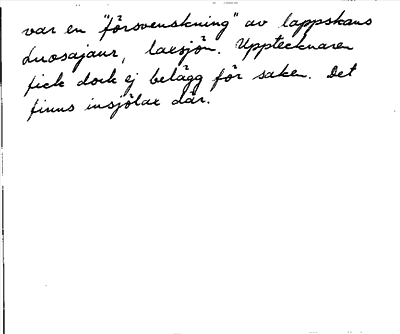 var en "försvenskning" av lappskans
Luosajaur, laxsjön. Upptecknaren
fick dock ej belägg för saken. Det
finns insjölax där.